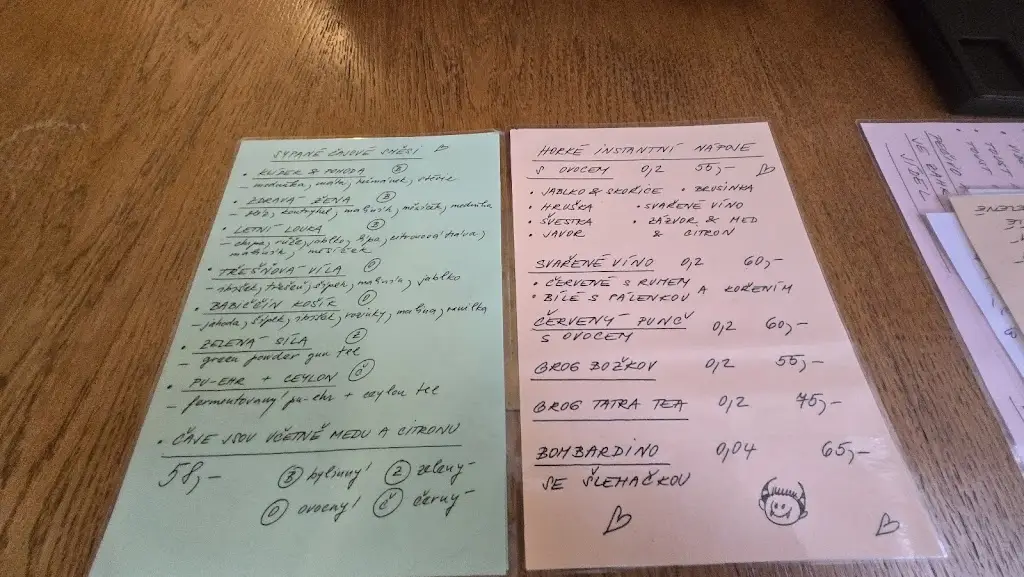 SYPANÉ ČAJOVÉ SMĚSI
• KLIDER & POHODA Ⓑ
– meduňka, máta, heřmánek,
• ZDRAVÁ ŽENA Ⓑ
– kontryhel, maliník, měsíček, meduňka
• LETNÍ LOUKA Ⓑ
– růže, jablko, lípa, citronová tráva,
maliník, měsíček
• TŘEŠŇOVÁ VÍLA Ⓞ
– ibišek, třešeň, šípek, maliník, jablko
• BABIČČIN KOŠÍK Ⓞ
– jahoda, šípek, ibišek, rozinky, malina, vanilka
• ZELENÁ SÍLA Ⓩ
– green powder gun tee
• PU-EHR + CEYLON Ⓒ̌
– fermentovaný pu-ehr + ceylon tee
• ČAJE JSOU VČETNĚ MEDU A CITRONU
58,– Ⓑ bylinný Ⓩ zelený
Ⓞ ovocný Ⓒ̌ černý
HORKÉ INSTANTNÍ NÁPOJE
S OVOCEM 0,2 55,–
• JABLKO & SKOŘICE • BRUSINKA
• HRUŠKA • SVAŘENÉ VÍNO
• ŠVESTKA • ZÁZVOR & MED
• JAVOR & CITRON
SVAŘENÉ VÍNO 0,2 60,–
• ČERVENÉ S RUMEM
• BÍLÉ S PÁLENKOU A KOŘENÍM
ČERVENÝ PUNČ 0,2 60,–
S OVOCEM
GROG BOŽKOV 0,2 55,–
GROG TATRA TEA 0,2 75,–
BOMBARDINO 0,04 65,–
SE ŠLEHAČKOU